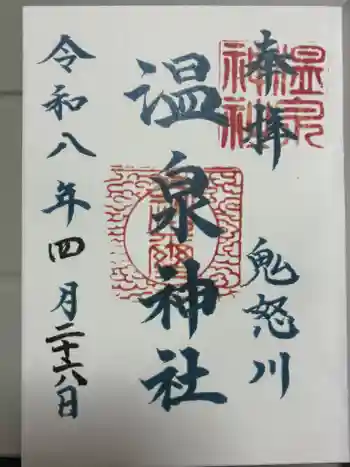 奉拝
鬼怒川
温泉神社
令和八年四月二十六日
温泉
神社